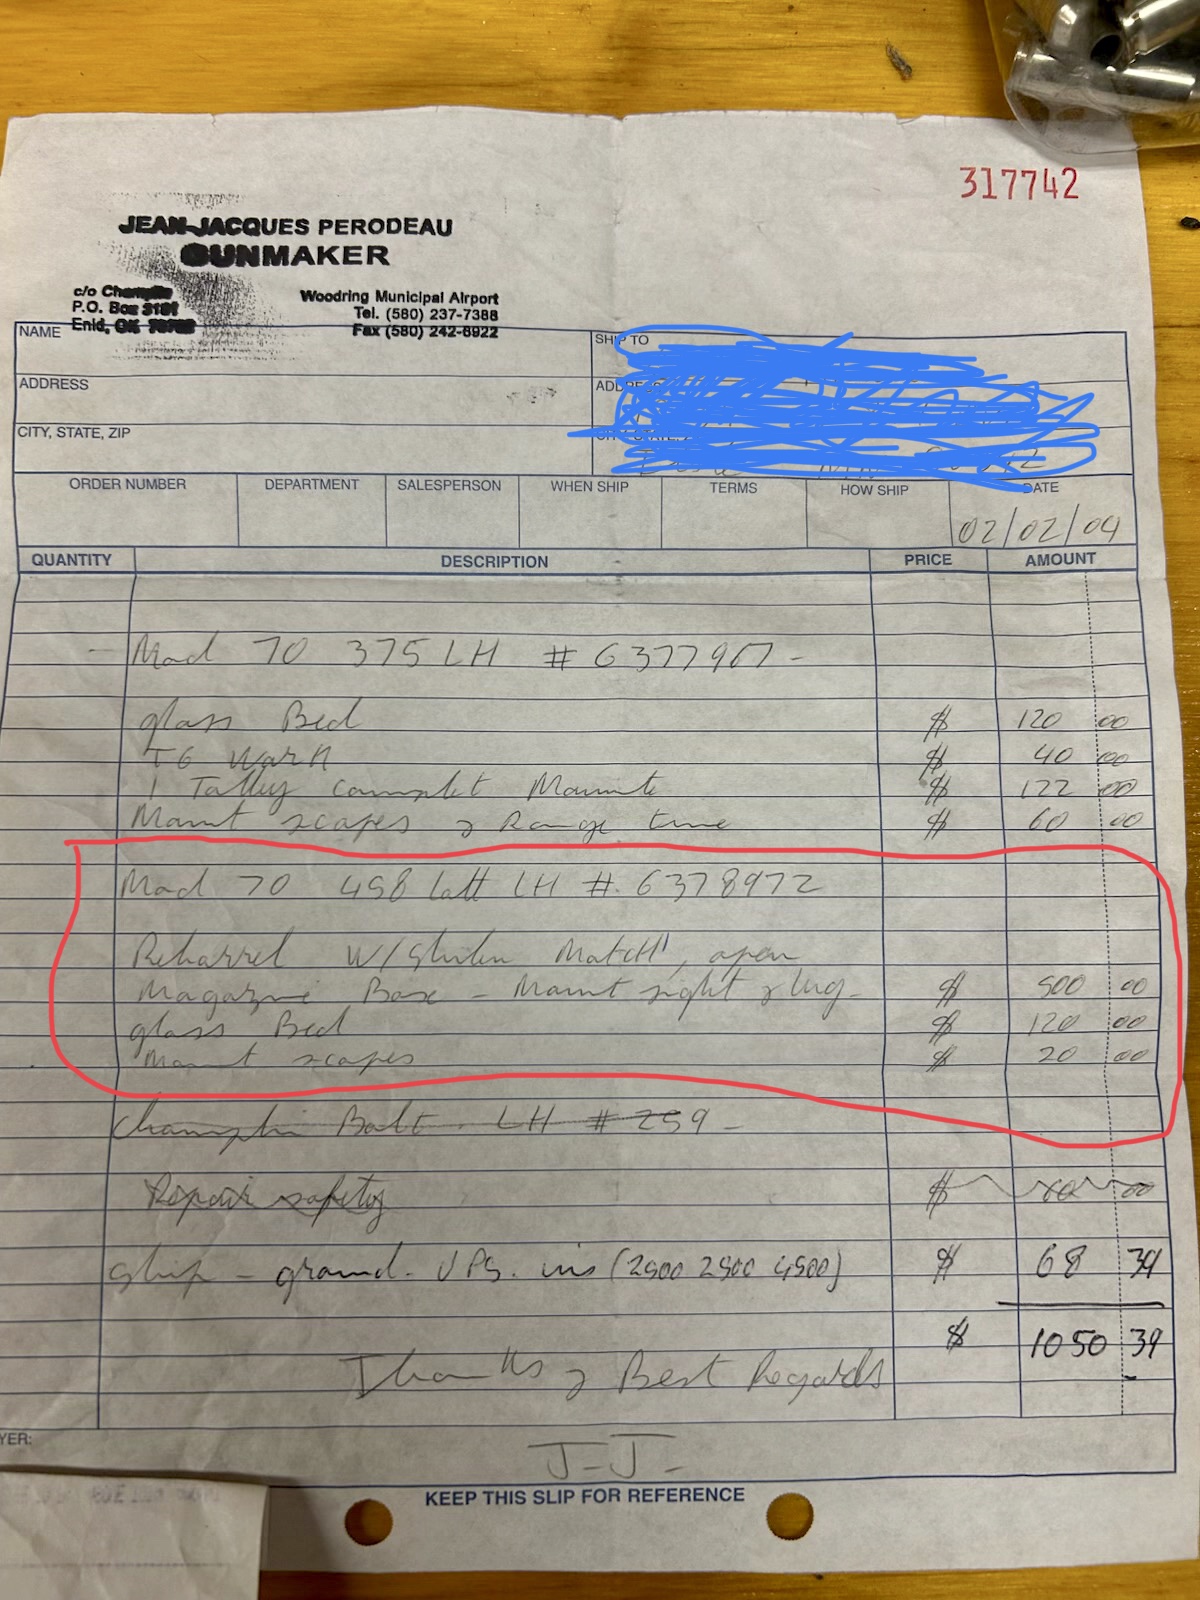 317742
JEAN-JACQUES PERODEAU
GUNMAKER
c/o
P.O. Box 3101
Enid, OK
Woodring Municipal Airport
Tel. (580) 237-7388
Fax (580) 242-6922
NAME
SHIP TO
ADDRESS
CITY, STATE, ZIP
ORDER NUMBER DEPARTMENT SALESPERSON WHEN SHIP TERMS HOW SHIP DATE
02/02/04
QUANTITY DESCRIPTION PRICE AMOUNT
Mod 70 375 LH # 6377967 -
glass Bed $ 120 00
T6 Work $ 40 00
1 Talley complet Mounts $ 122 00
Mount scopes & Range time $ 60 00
Mod 70 458 Lott LH # 6378972
Rebarrel w/ Match, open
Magazine Box - Mount sight & lug - $ 500 00
glass Bed $ 120 00
Mount scopes $ 20 00
Champlin Bolt. LH # 259 -
Repair safety $
Ship - ground. UPS. ins (2500 2500 4500) $ 68 39
$ 1050 39
Thanks & Best Regards
J-J-
YER:
KEEP THIS SLIP FOR REFERENCE